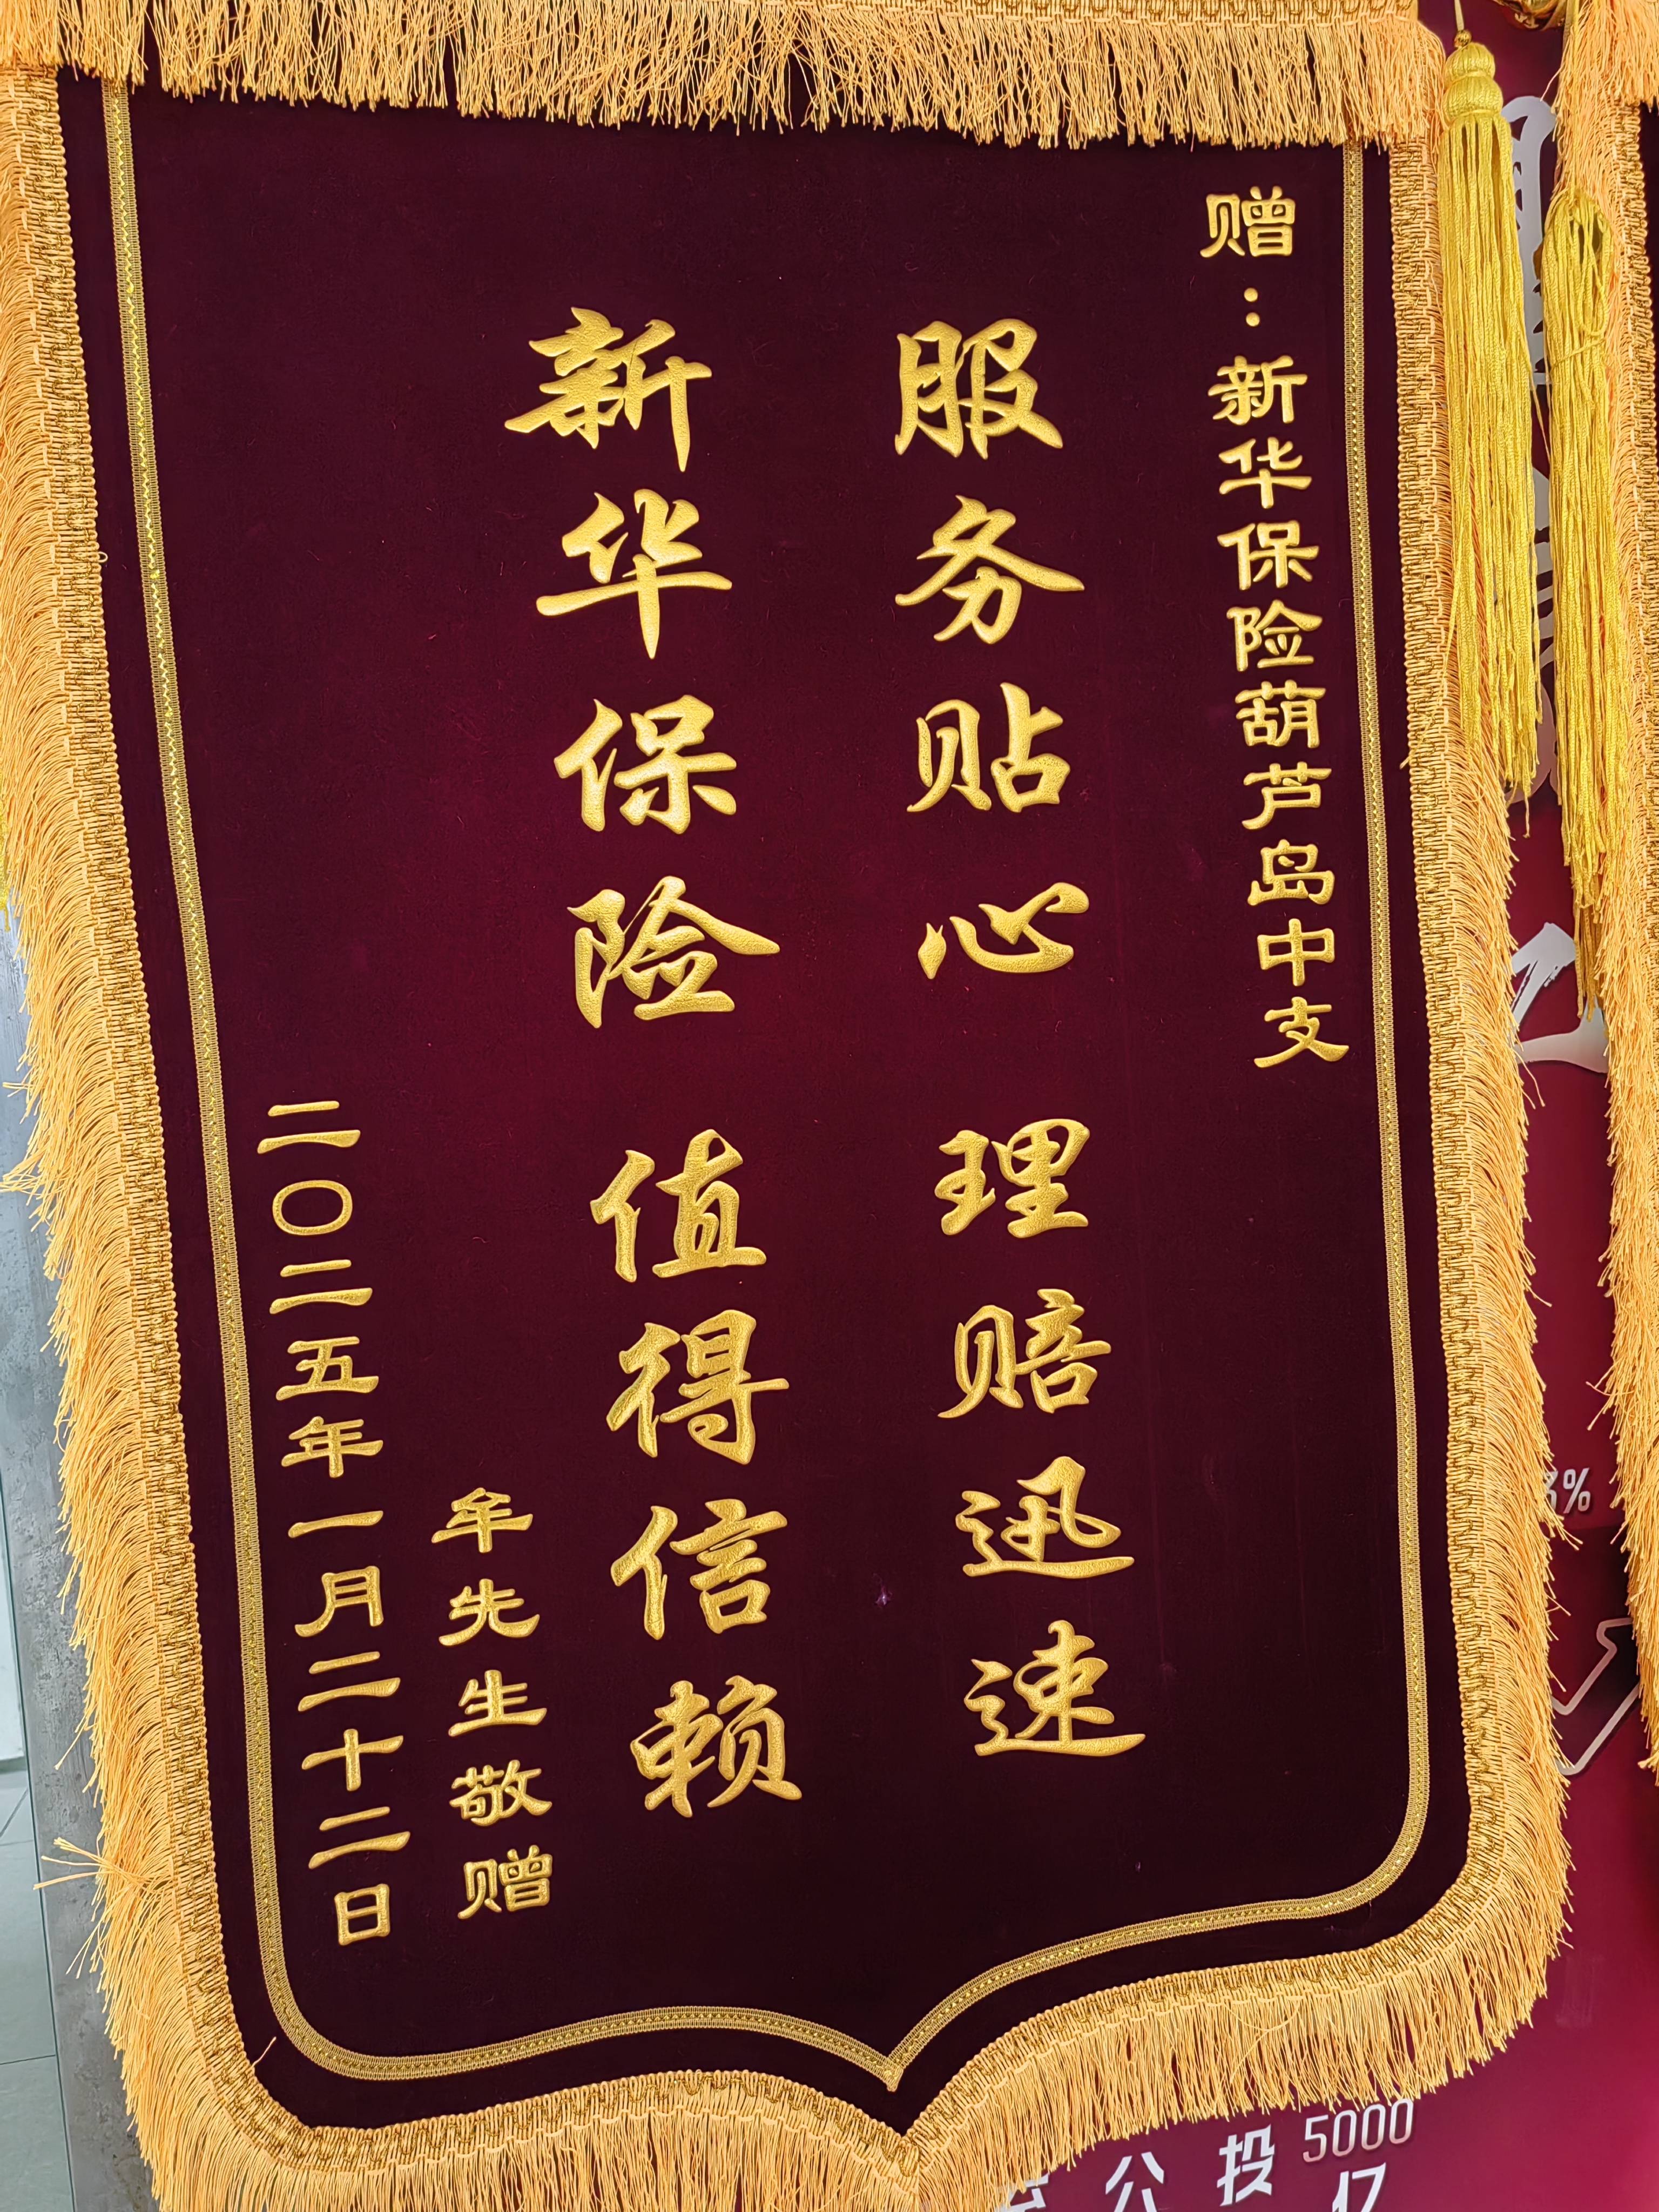 赠：新华保险葫芦岛中支
服务贴心 理赔迅速
新华保险 值得信赖
牟先生敬赠
二〇二五年一月二十二日
%
公投5000
亿